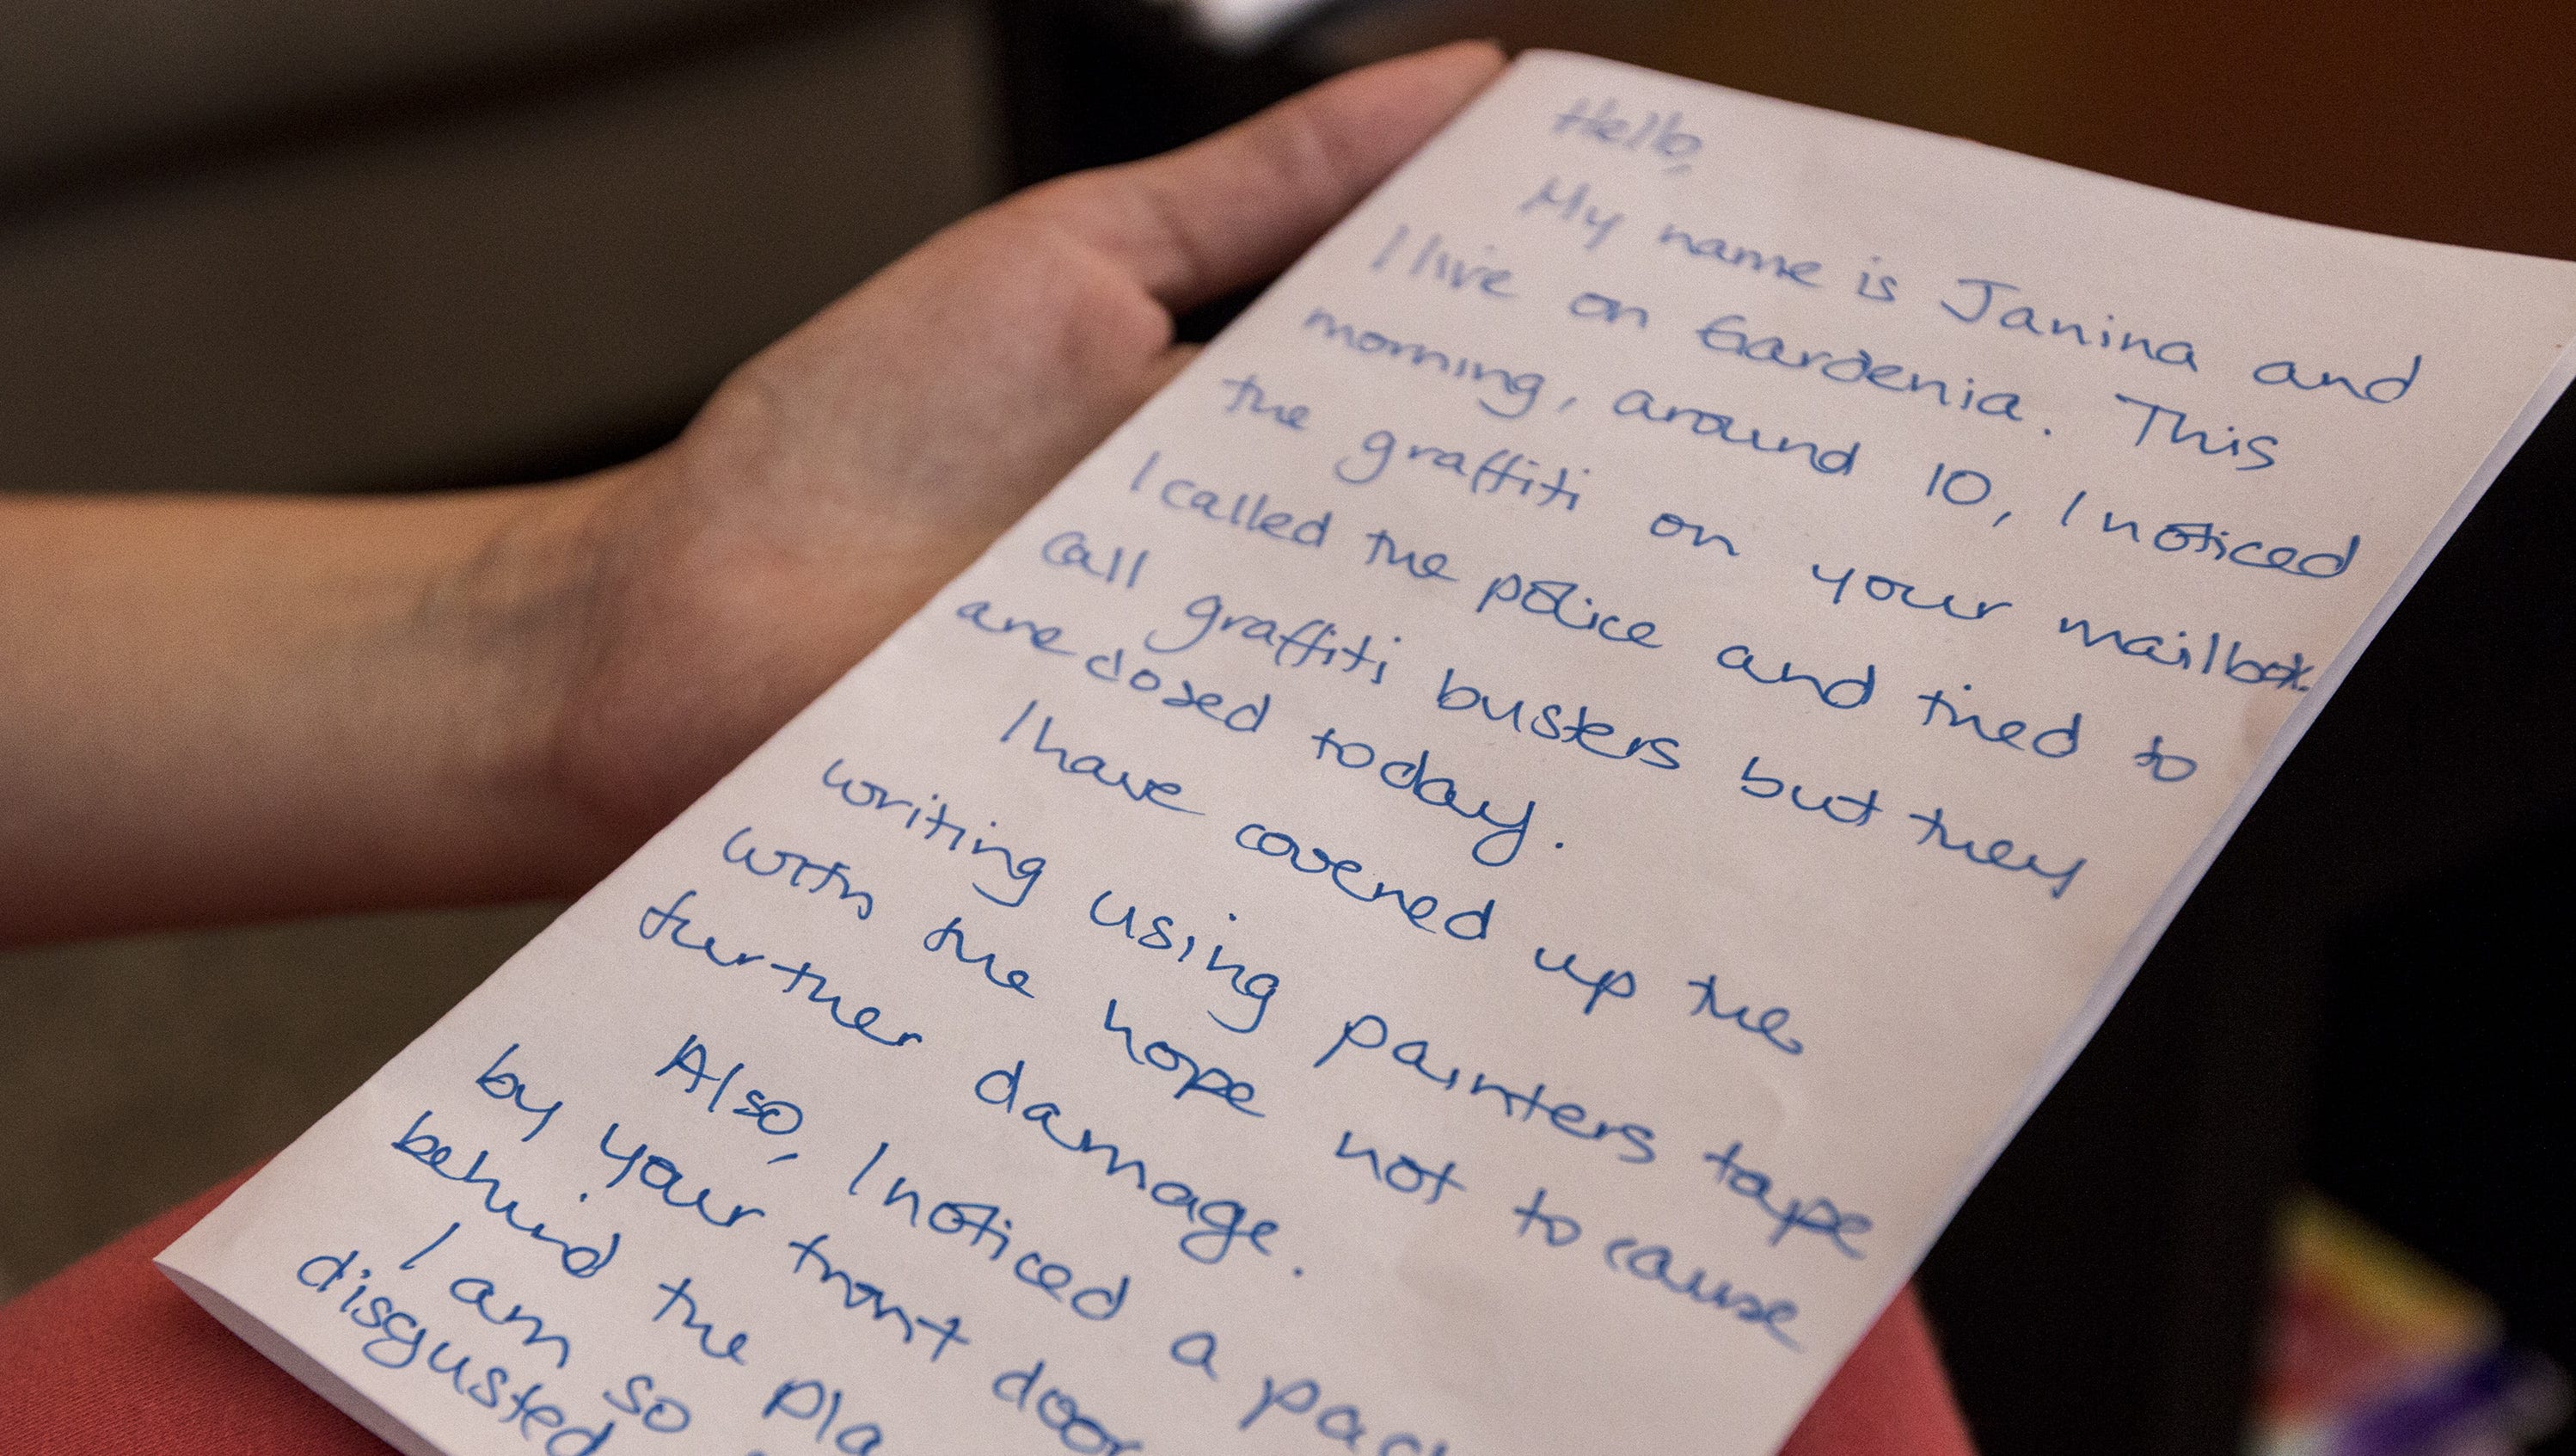 Hello,
My name is Janina and
I live on Gardenia. This
morning, around 10, I noticed
the graffiti on your mailbox.
I called the police and tried to
call graffiti busters but they
are closed today.
I have covered up the
writing using painters tape
with the hope not to cause
further damage.
Also, I noticed a pac
by your front door
behind the pla
I am so
disgusted